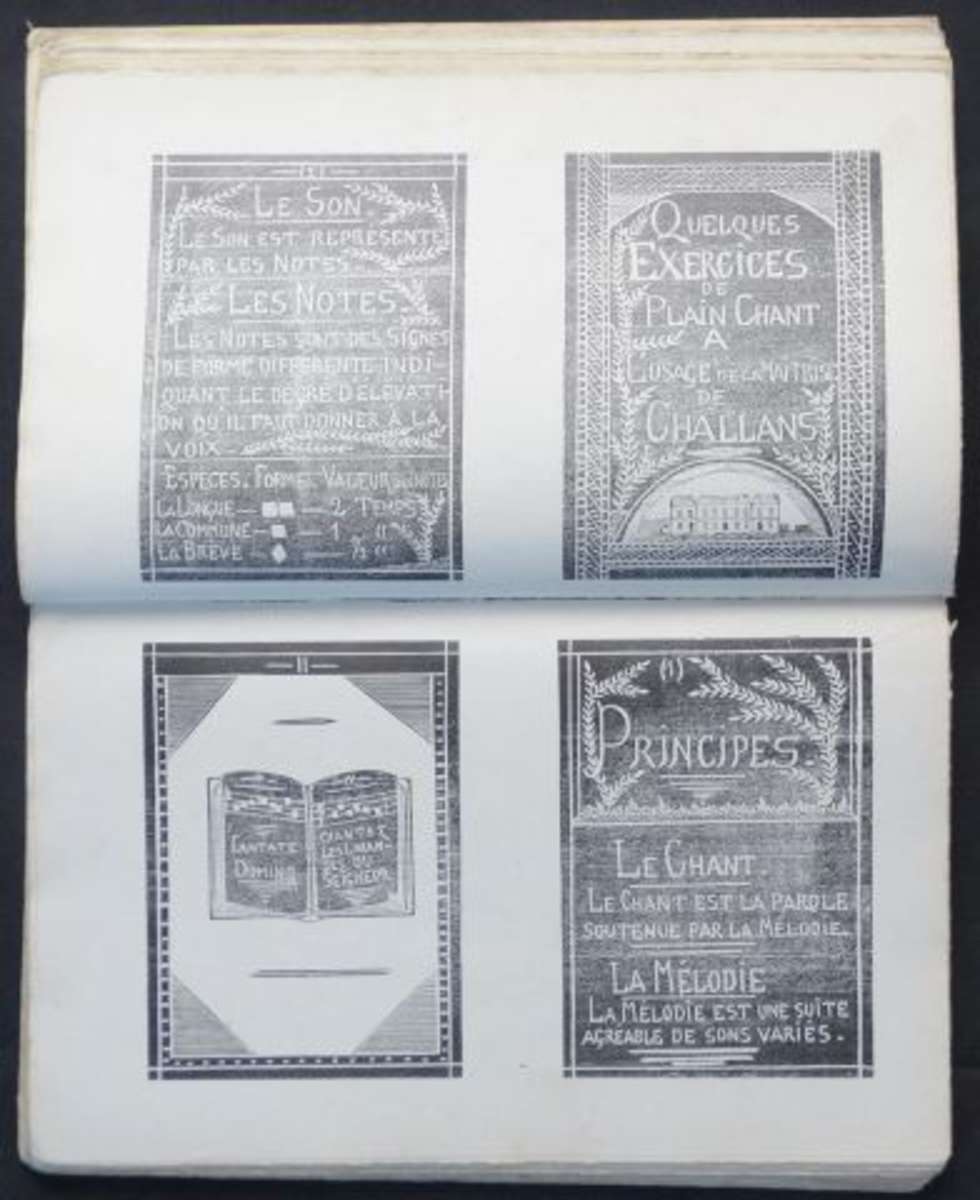 LE SON
LE SON EST REPRÉSENTÉ
PAR LES NOTES.
LES NOTES.
LES NOTES SONT DES SIGNES
DE FORME DIFFÉRENTE INDI-
QUANT LE DEGRÉ D'ÉLÉVATI-
ON QU'IL FAUT DONNER À LA
VOIX
ESPÈCES. FORME. VALEUR
LA LONGUE — — 2 TEMPS
LA COMMUNE — — 1 "
LA BRÈVE — — ½ "
QUELQUES
EXERCICES
DE
PLAIN CHANT
A
L'USAGE DE LA
DE
CHALLANS
— II —
CANTATE
DOMINO
CHANTEZ
LES LOUAN-
GES DU
SEIGNEUR
(1)
PRINCIPES.
LE CHANT.
LE CHANT EST LA PAROLE
SOUTENUE PAR LA MÉLODIE.
LA MÉLODIE
LA MÉLODIE EST UNE SUITE
AGRÉABLE DE SONS VARIÉS.